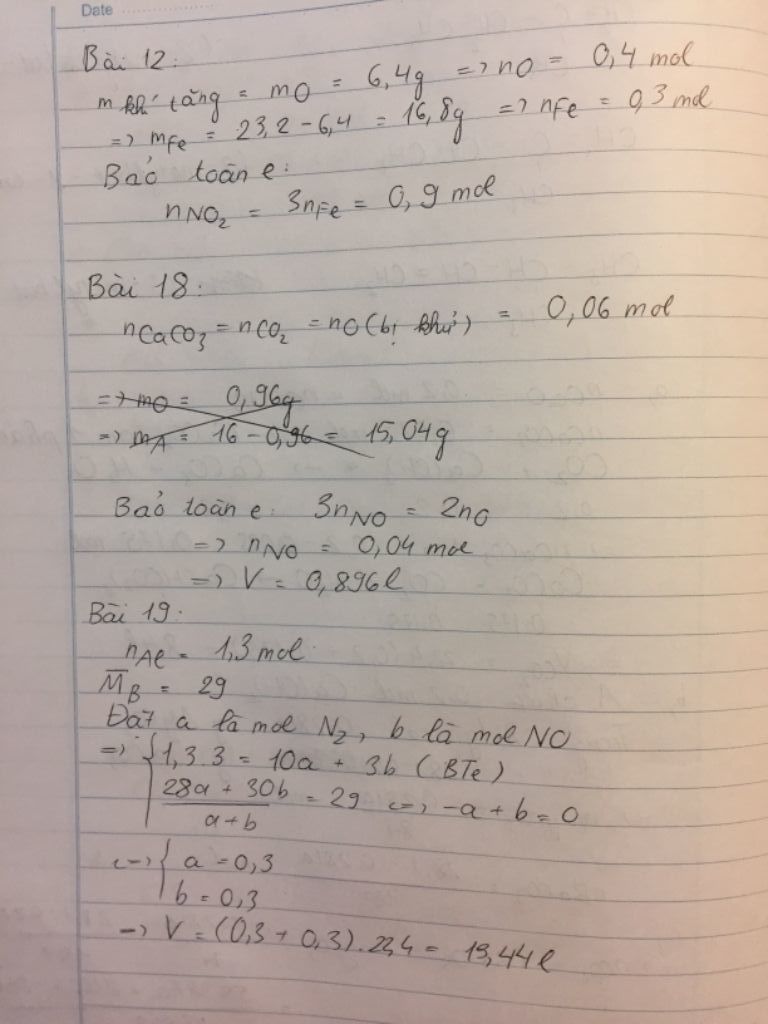 Date
Bài 12:
m khí tăng = mO = 6,4g => nO = 0,4 mol
=> mFe = 23,2 - 6,4 = 16,8g => nFe = 0,3 mol
Bảo toàn e:
nNO₂ = 3nFe = 0,9 mol
Bài 18:
nCaCO₃ = nCO₂ = nO(bị khử) = 0,06 mol
=> mO = 0,96g
=> mA = 16 - 0,96 = 15,04g
Bảo toàn e: 3nNO = 2nO
=> nNO = 0,04 mol
=> V = 0,896l
Bài 19:
nAl = 1,3 mol
M̅B = 29
Đặt a là mol N₂, b là mol NO
=> { 1,3.3 = 10a + 3b (BTe)
(28a + 30b)/(a+b) = 29 <=> -a + b = 0
<=> { a = 0,3
b = 0,3
=> V = (0,3 + 0,3).22,4 = 13,44l